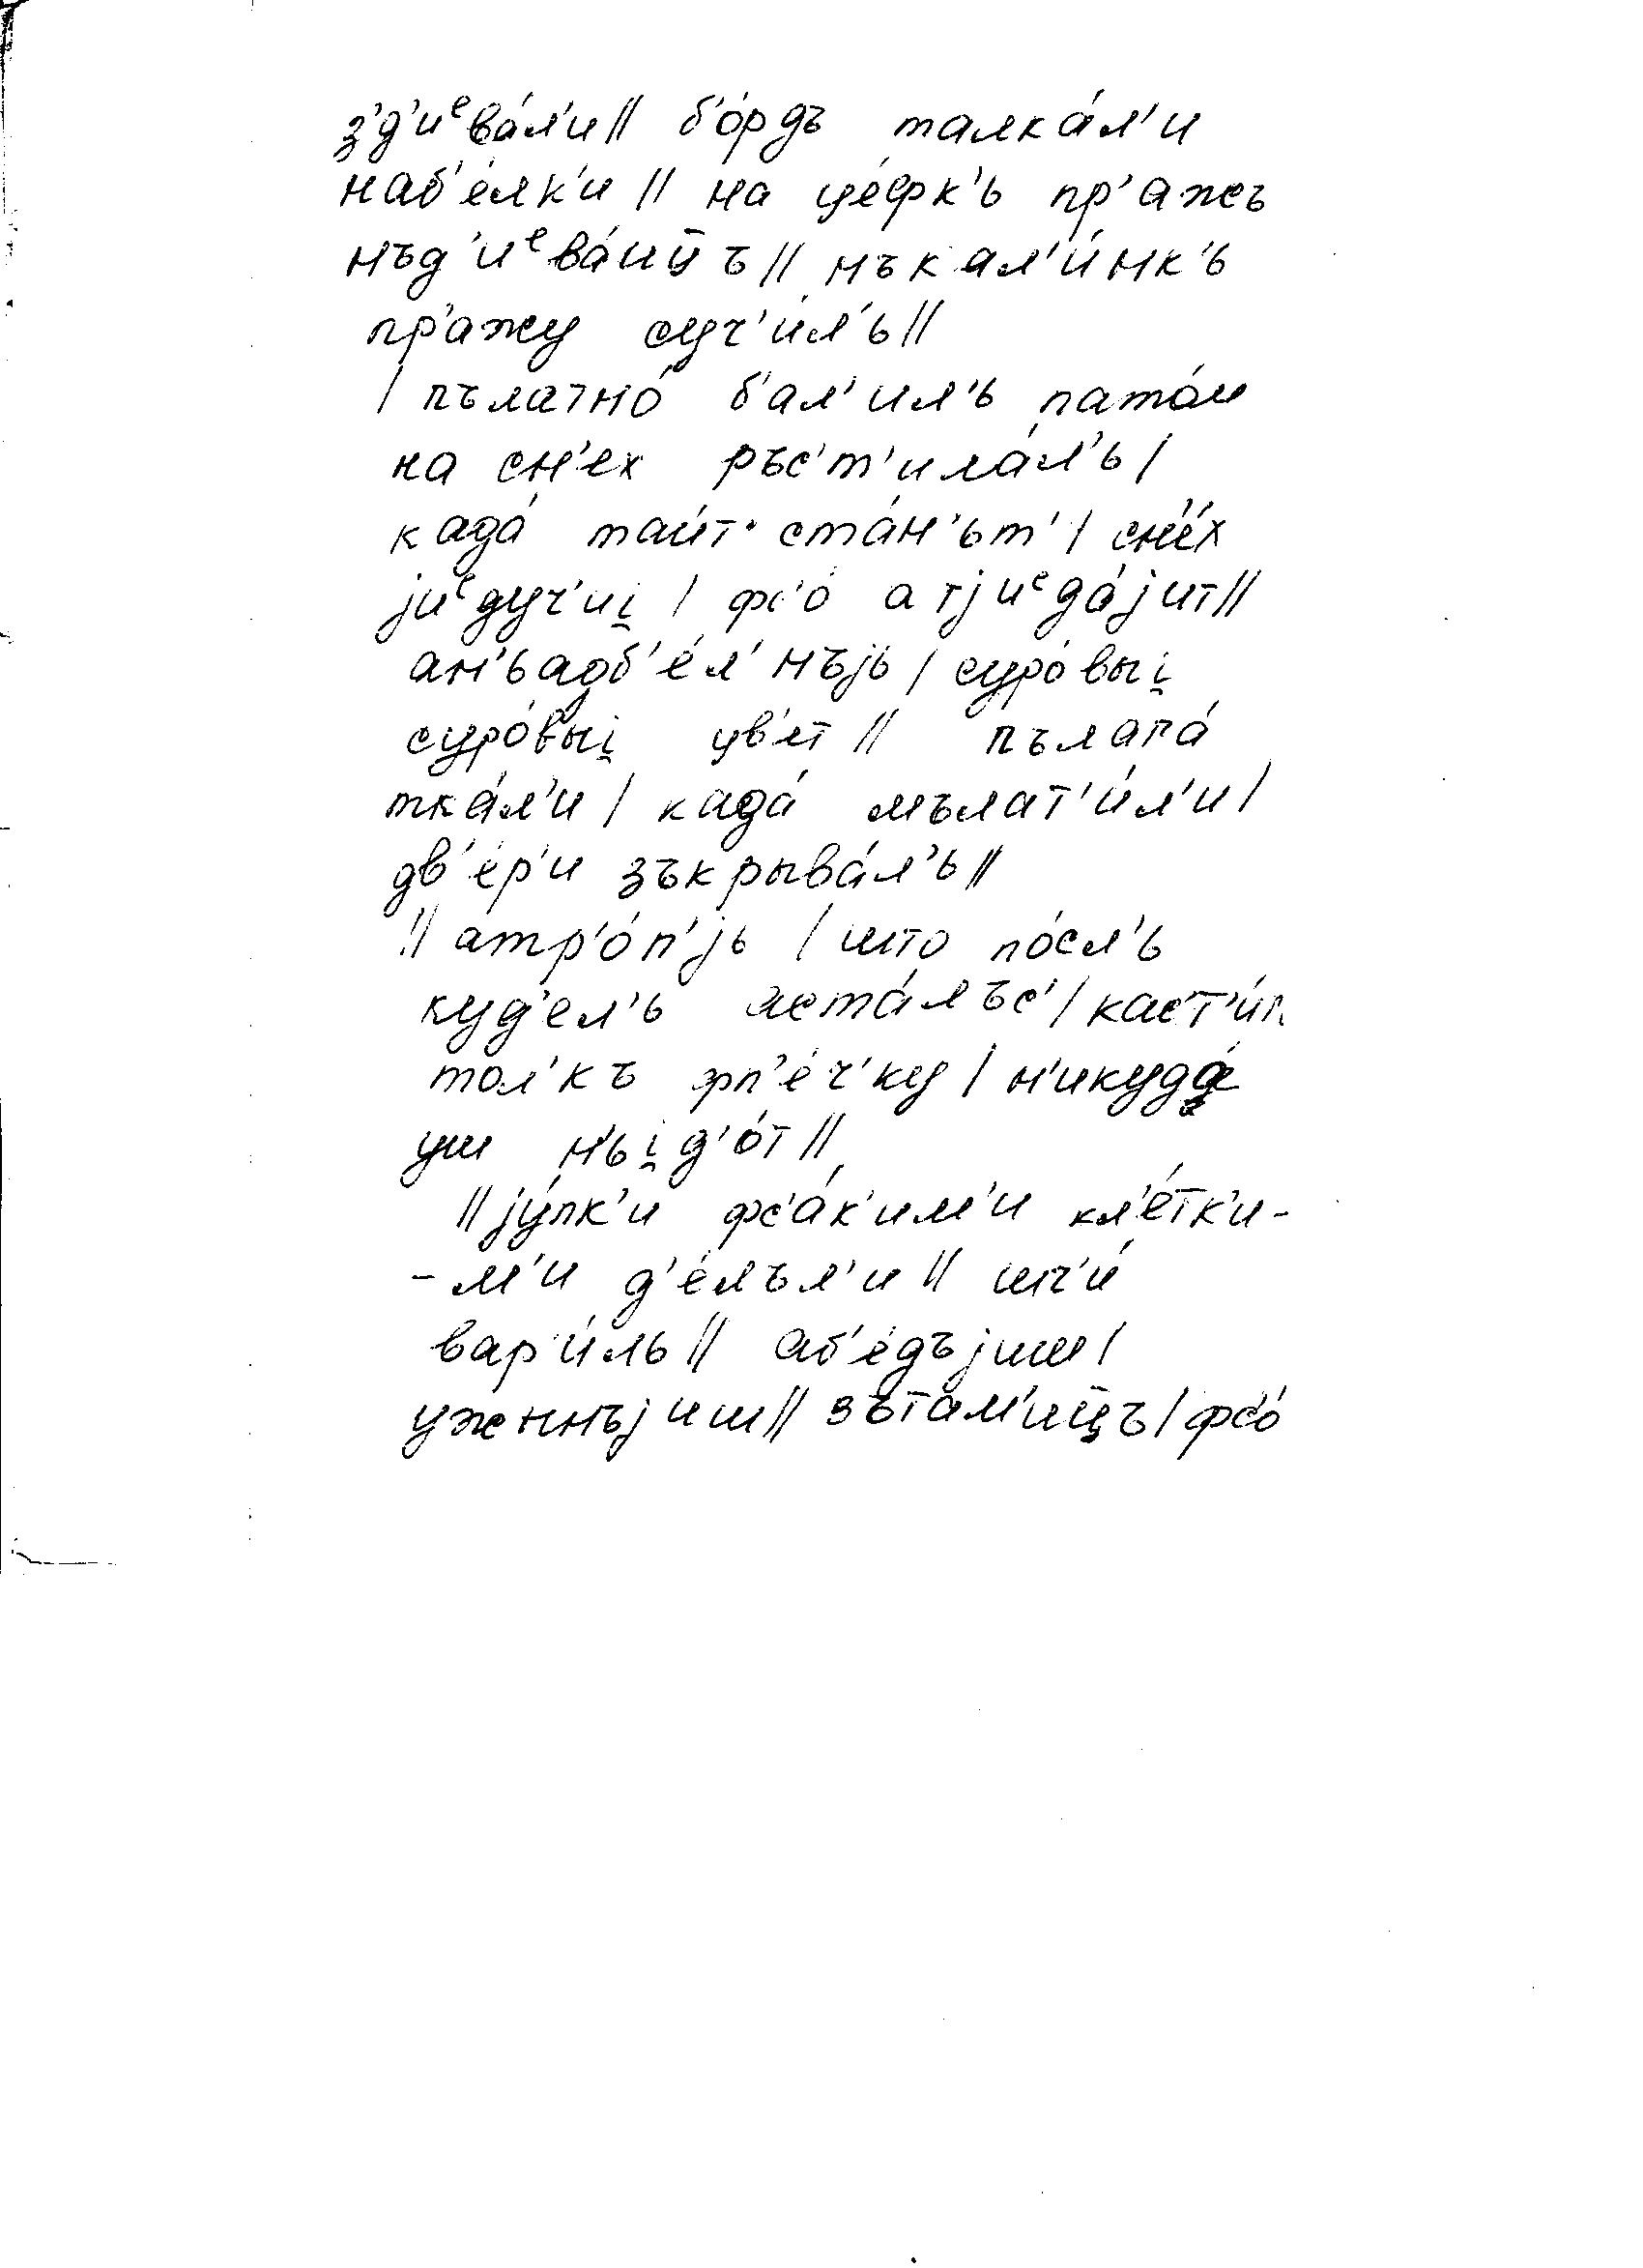 з'д'иᵉва́л'и// б'о́рдъ талка́л'и
наб'е́лк'и // на це́фк'ь пр'ажъ
мъд'иᵉва́иц̄ъ// нъкал'и́нк'ь
пр'ажу суч'и́л'ь//
/ пълатно́ б'ал'ил'ь пато́м
на сн'ех ръс'т'ила́л'ь/
када́ таи́т' ста́н'ьт'/ сн'е́х
jиᵉдуч'иi̯ / фс'о́ атjиᵉда́jит//
ан'ьадб'е́л'нъjь/ суро́выi̯
суро́выi̯ цв'ет // пълата́
тка́л'и/ када́ мълат'и́л'и/
дв'е́р'и зъкрыва́л'ь//
// атр'о́п'jь /што по́сл'ь
куд'ел'ь аста́лъс'/ кас'т'и́р
тол'къ фп'е́ч'ку/ н'икуда́
уш н'ьi̯д'о́т//
//jу́пк'и фс'а́к'им'и кл'е́тк'и-
-м'и д'е́лъл'и// шч'и́
вар'и́ль// аб'е́дъjиш/
ужннъjиш// зътам'иц̄ъ/ фс'о́